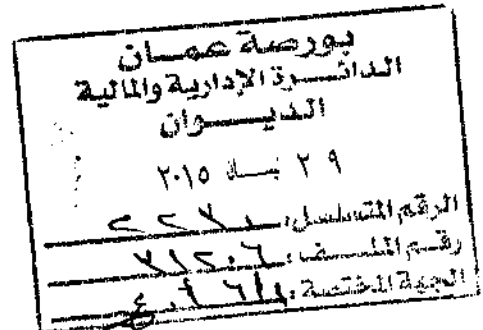 بورصة عمان
الدائرة الإدارية والمالية
الديوان
٢٩ نيسان ٢٠١٥
الرقم المتسلسل:
رقم الملف: ٣١٢٠٦
الجهة المختصة: